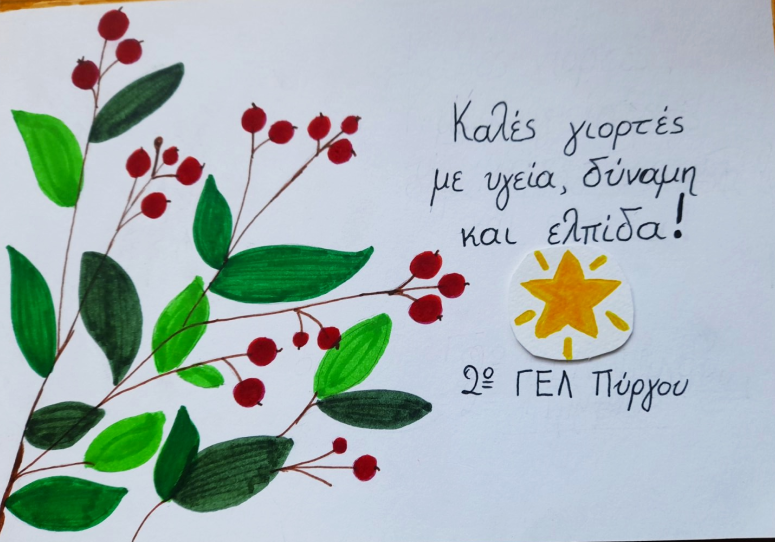 Καλές γιορτές
με υγεία, δύναμη
και ελπίδα!
2º ΓΕΛ Πύργου